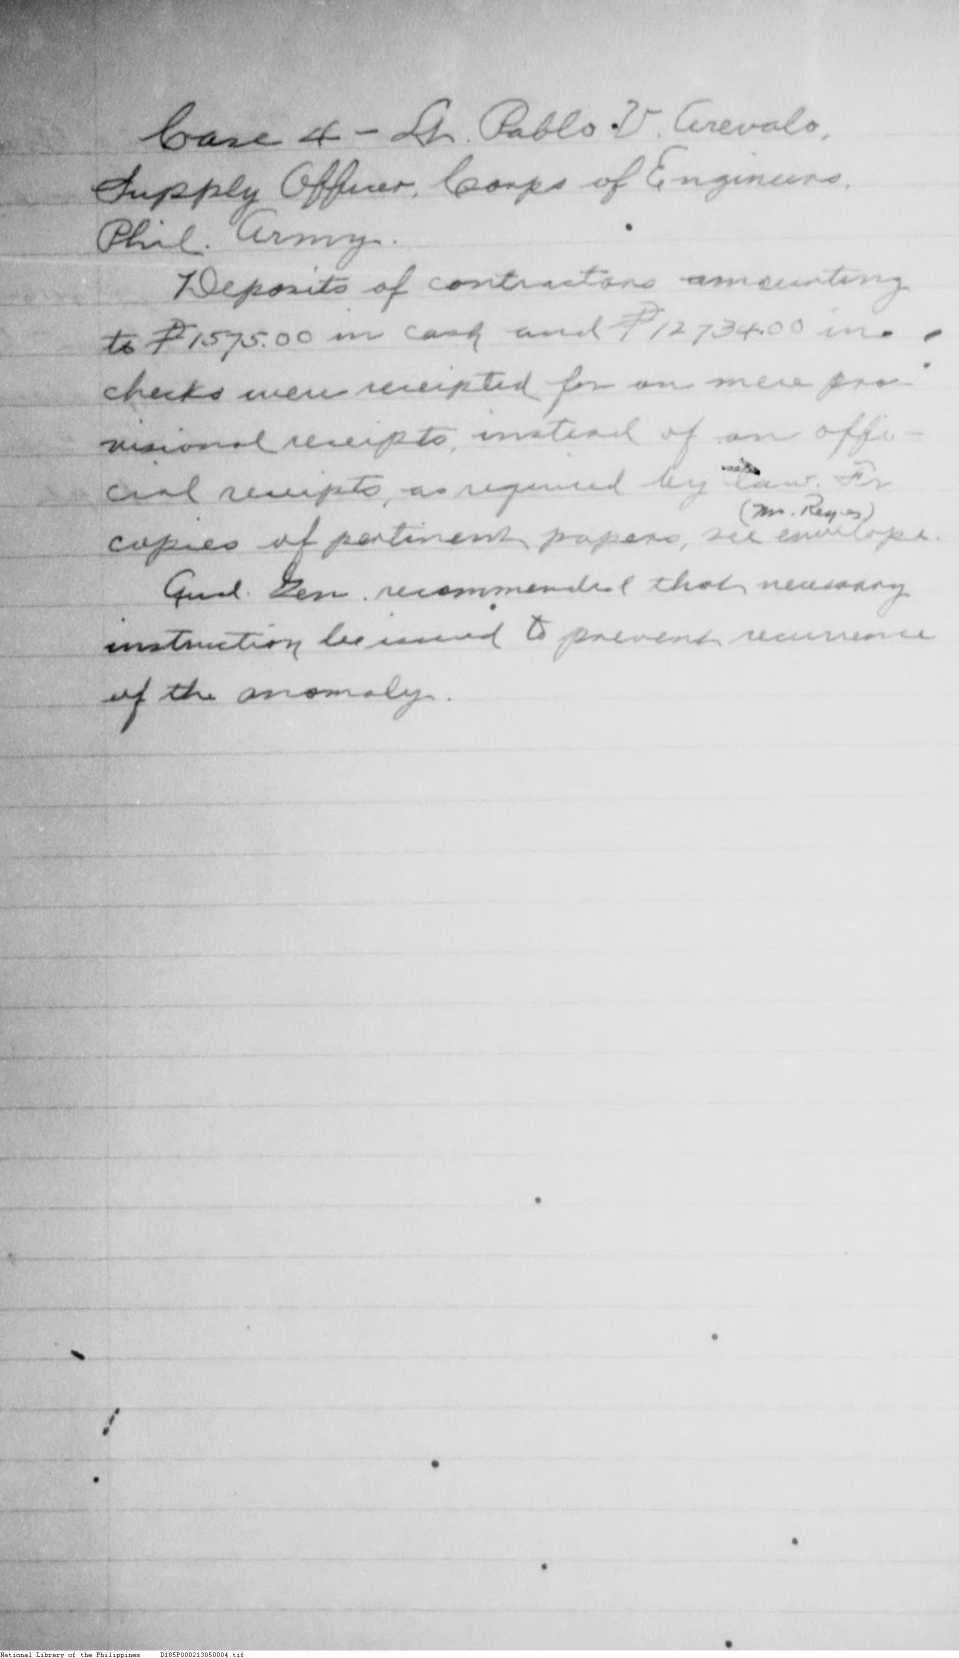 Case 4 – Lt. Pablo V. Arevalo,
Supply Officer, Corps of Engineers,
Phil. Army.
Deposits of contractors amounting
to ₱1575.00 in cash and ₱12734.00 in
checks were receipted for on mere pro-
visional receipts, instead of on offi-
cial receipts, as required by law. For
(Mr. Reyes)
copies of pertinent papers, see envelope.
Aud. Gen. recommended that necessary
instruction be issued to prevent recurrence
of the anomaly.
National Library of the Philippines D185P000213050004.tif